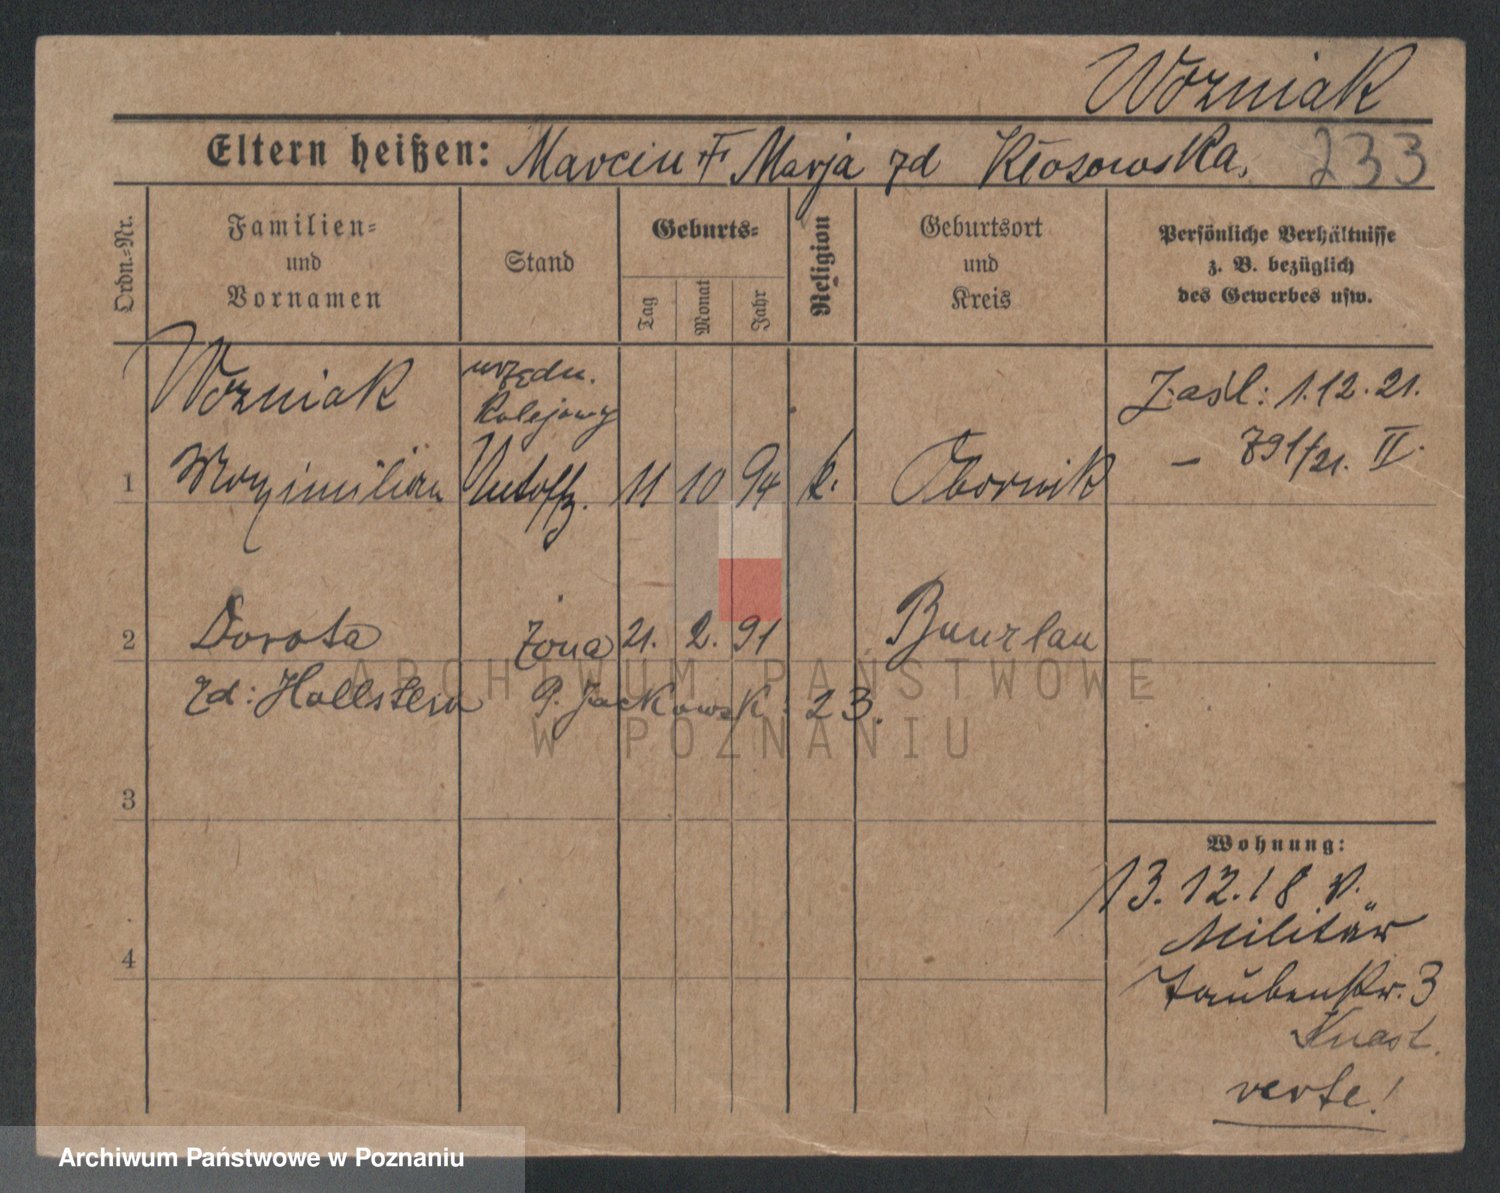 Wozniak
Eltern heißen: Marcin + Marja zd Kłosowska. 233
Ordn.-Nr.
Familien-
und
Vornamen
Stand
Geburts-
Tag
Monat
Jahr
Religion
Geburtsort
und
Kreis
Persönliche Verhältnisse
z. B. bezüglich
des Gewerbes usw.
Wozniak
urzędn.
kolejowy
Zaśl: 1.12.21.
– 791/21. II.
1 Maximilian 11 10 94 k. Obornik
2 Dorota żona 21. 2. 91 Bunzlau
zd: Hallstein P. Jackowsk: 23.
3
4
Wohnung:
13.12.18 v.
Militär
Taubenstr. 3
verte!
ARCHIWUM PAŃSTWOWE
W POZNANIU
Archiwum Państwowe w Poznaniu